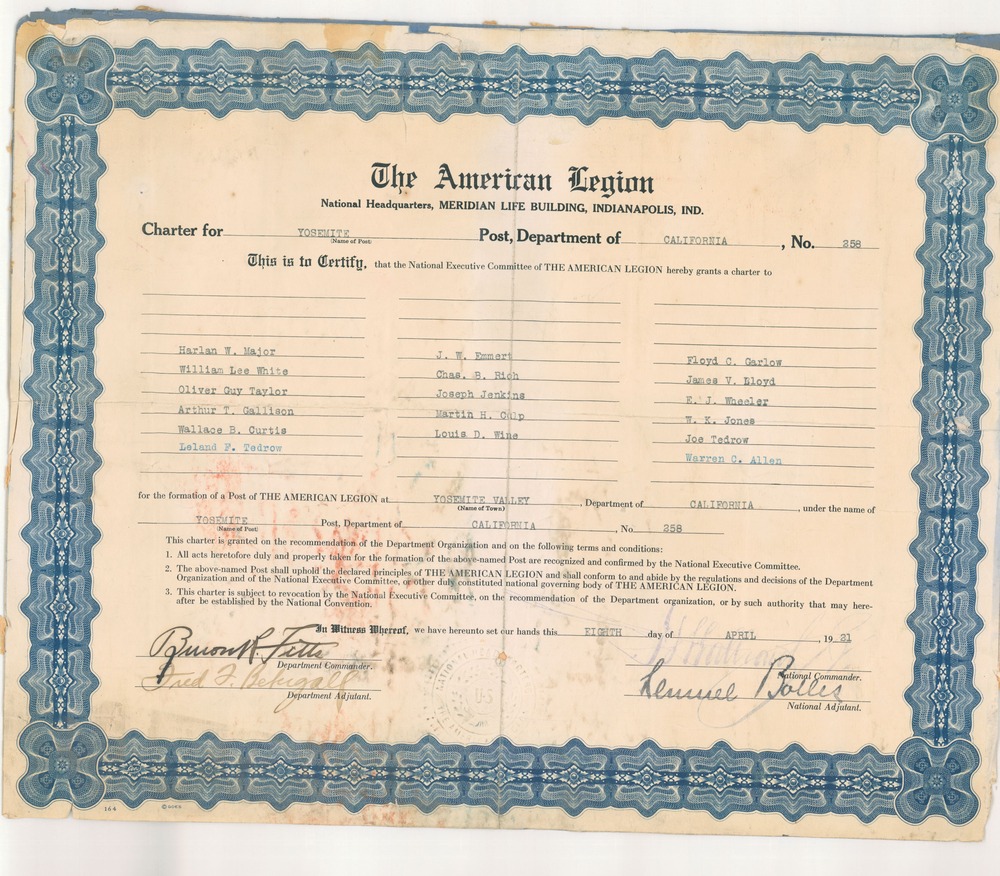 The American Legion
National Headquarters, MERIDIAN LIFE BUILDING, INDIANAPOLIS, IND.
Charter for YOSEMITE Post, Department of CALIFORNIA, No. 258
(Name of Post)
This is to Certify, that the National Executive Committee of THE AMERICAN LEGION hereby grants a charter to
Harlan W. Major
William Lee White
Oliver Guy Taylor
Arthur T. Gallison
Wallace B. Curtis
Leland F. Tedrow
J. W. Emmert
Chas. B. Rich
Joseph Jenkins
Martin H. Culp
Louis D. Wine
Floyd C. Garlow
James V. Lloyd
E. J. Wheeler
W. K. Jones
Joe Tedrow
Warren C. Allen
for the formation of a Post of THE AMERICAN LEGION at YOSEMITE VALLEY, Department of CALIFORNIA, under the name of
(Name of Town)
YOSEMITE Post, Department of CALIFORNIA, No. 258
(Name of Post)
This charter is granted on the recommendation of the Department Organization and on the following terms and conditions:
1. All acts heretofore duly and properly taken for the formation of the above-named Post are recognized and confirmed by the National Executive Committee.
2. The above-named Post shall uphold the declared principles of THE AMERICAN LEGION and shall conform to and abide by the regulations and decisions of the Department
Organization and of the National Executive Committee, or other duly constituted national governing body of THE AMERICAN LEGION.
3. This charter is subject to revocation by the National Executive Committee, on the recommendation of the Department organization, or by such authority that may here-
after be established by the National Convention.
In Witness Whereof, we have hereunto set our hands this EIGHTH day of APRIL, 19 21
Buron R. Fitts
Department Commander.
Fred F.
Department Adjutant.
National Commander.
Lemuel Bolles
National Adjutant.
U.S
164
© GOES